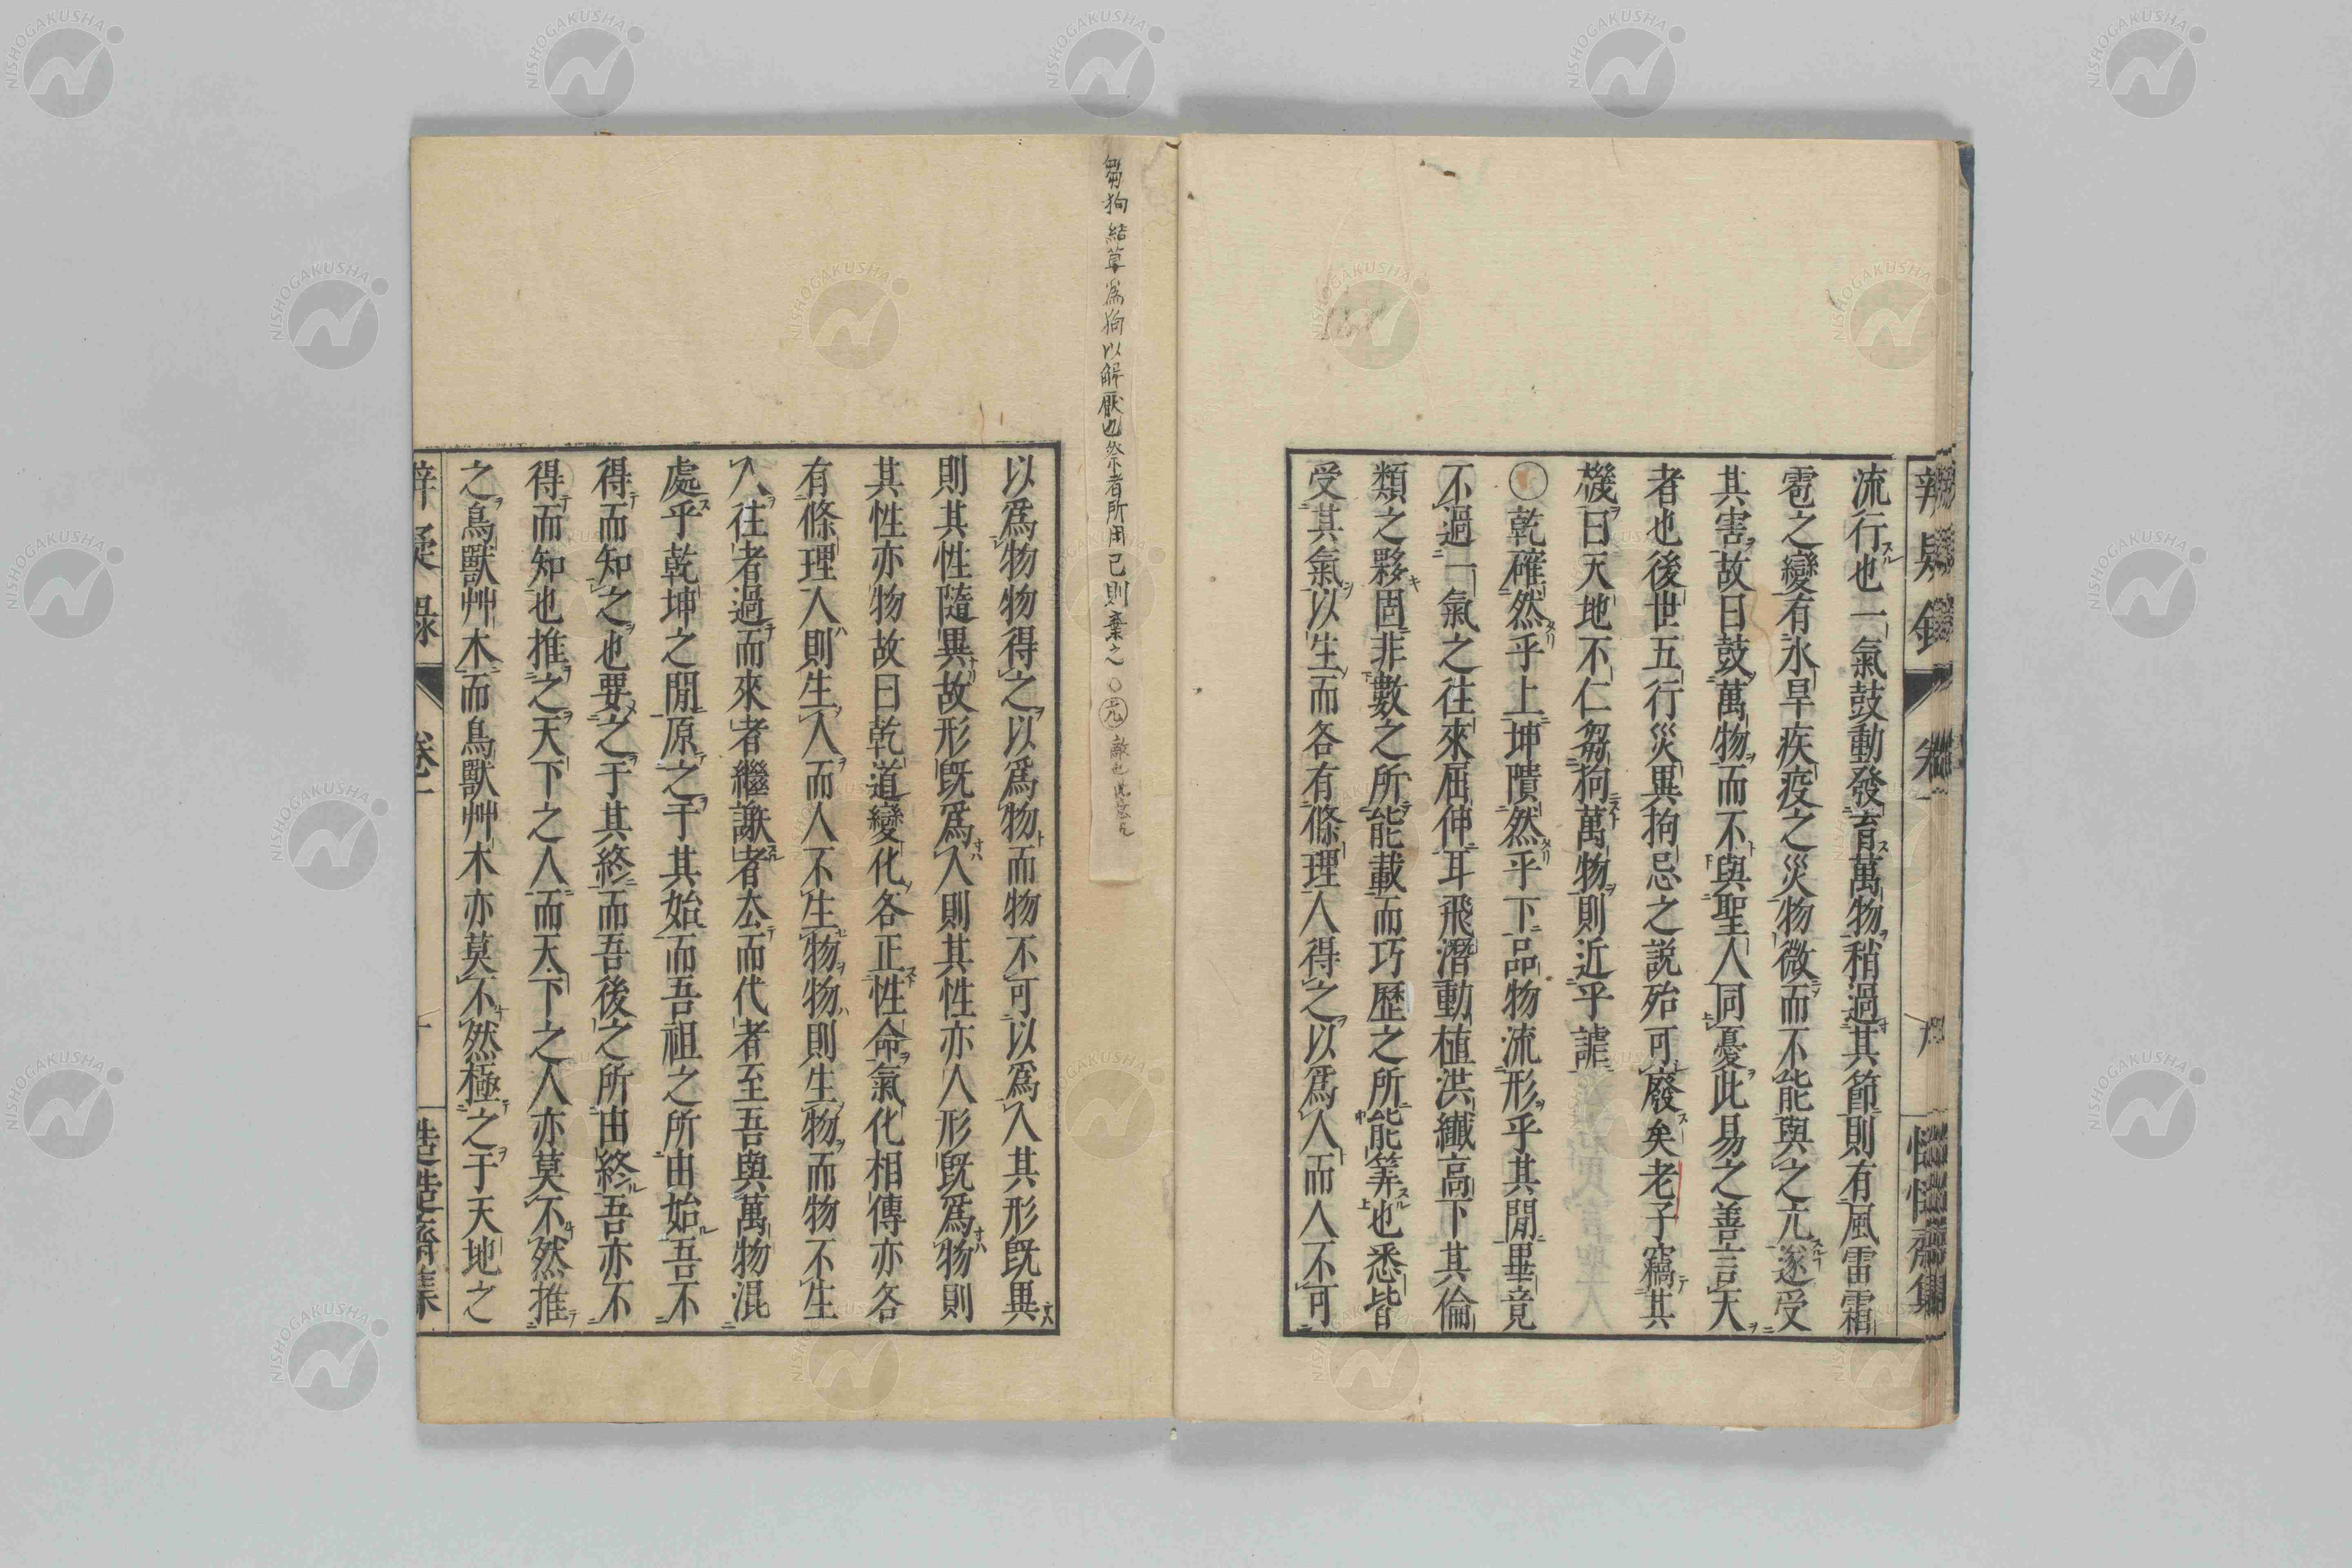 流行也一氣鼓動發育萬物稍過其節則有風雷霜
雹之變有氷旱疾疫之災物微而不能與之亢遂受
其害故曰鼓萬物而不與聖人同憂此易之善言天
者也後世五行災異拘忌之説殆可廢矣老子竊其
機曰天地不仁芻狗萬物則近乎謔
○乾確然乎上坤隤然乎下品物流形乎其閒畢竟
不過一氣之往來屈伸耳飛潛動植洪纖高下其倫
類之夥固非數之所能載而巧歷之所能筭也悉皆
受其氣以生而各有條理人得之以爲人而人不可
芻狗結草爲狗以解厭也祭者所用已則棄之○亢敵也
以爲物物得之以爲物而物不可以爲人其形旣異
則其性隨異故形旣爲人則其性亦人形旣爲物則
其性亦物故曰乾道變化各正性命氣化相傳亦各
有條理人則生人而人不生物物則生物而物不生
人往者過而來者繼謝者厺而代者至吾與萬物混
處乎乾坤之閒原之于其始而吾祖之所由始吾不
得而知之也要之于其終而吾後之所由終吾亦不
得而知也推之天下之人而天下之人亦莫不然推
之鳥獸艸木而鳥獸艸木亦莫不然極之于天地之
辨疑録
卷一
慥慥齋集
NISHOGAKUSHA